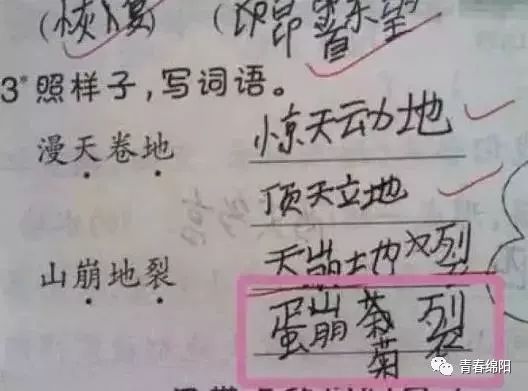 (恢复) (
3*照样子,写词语。
漫天卷地 惊天动地
顶天立地
山崩地裂 天崩地裂
蛋崩菊裂
青春绵阳